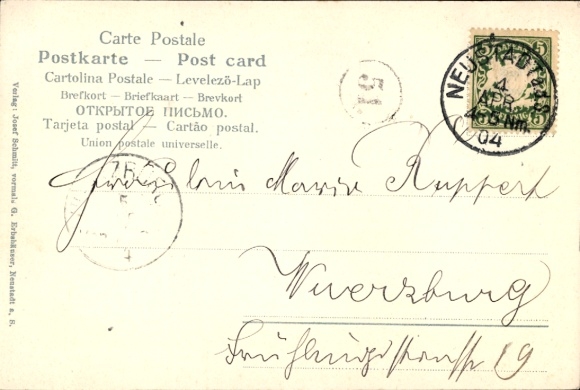 Carte Postale
Postkarte — Post card
Cartolina Postale — Levelező-Lap
Brefkort — Briefkaart — Brevkort
ОТКРЫТОЕ ПИСЬМО.
Tarjeta postal — Cartão postal.
Union postale universelle.
5
NEUSTADT a/S.
4
APR.
4-5 Nm.
04
5
Fräulein Marie Ruppert
Wuerzburg
Frühlingsstrasse 19
Verlag: Josef Schmitt, vormals G. Erbshäuser, Neustadt a. S.